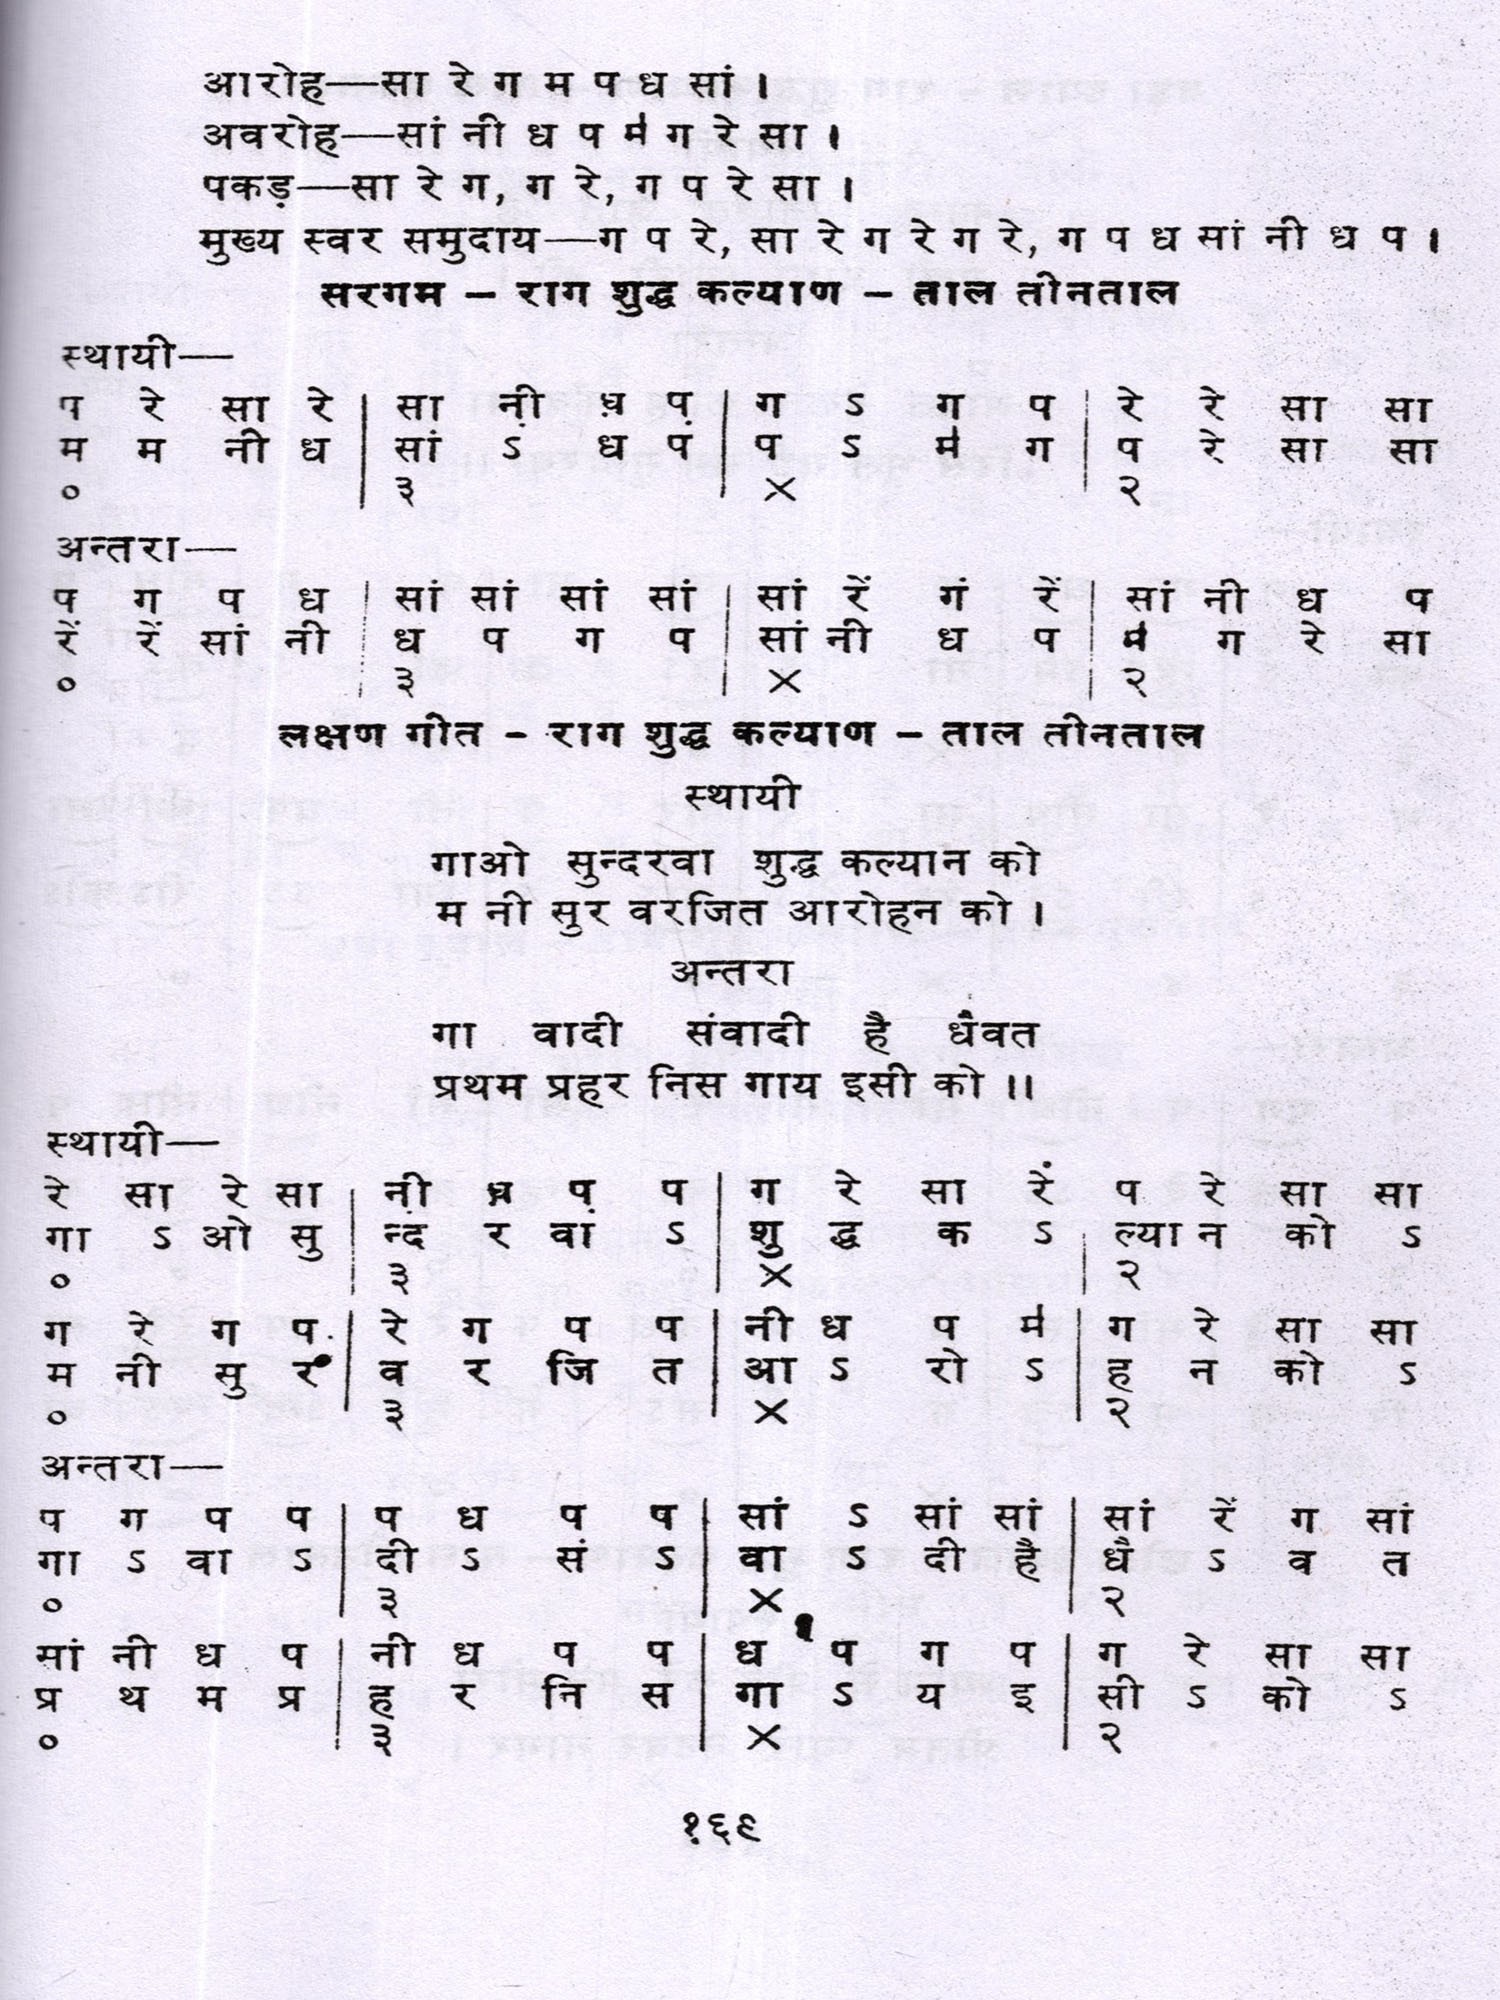 आरोह—सा रे ग म प ध सां ।
अवरोह—सां नी ध प म॑ ग रे सा ।
पकड़—सा रे ग, ग रे, ग प रे सा ।
मुख्य स्वर समुदाय—ग प रे, सा रे ग रे ग रे, ग प ध सां नी ध प ।
सरगम – राग शुद्ध कल्याण – ताल तीनताल
स्थायी—
प रे सा रे | सा नी़ ध़ प़ | ग ऽ ग प | रे रे सा सा
म म नी ध | सां ऽ ध प | प ऽ म॑ ग | प रे सा सा
० | ३ | × | २
अन्तरा—
प ग प ध | सां सां सां सां | सां रें गं रें | सां नी ध प
रें रें सां नी | ध प ग प | सां नी ध प | म॑ ग रे सा
० | ३ | × | २
लक्षण गीत – राग शुद्ध कल्याण – ताल तीनताल
स्थायी
गाओ सुन्दरवा शुद्ध कल्यान को
म नी सुर वरजित आरोहन को ।
अन्तरा
गा वादी संवादी है धैवत
प्रथम प्रहर निस गाय इसी को ॥
स्थायी—
रे सा रे सा | नी़ ध़ प़ प | ग रे सा रें | प रे सा सा
गा ऽ ओ सु | न्द र वा ऽ | शु द्ध क ऽ | ल्या न को ऽ
० | ३ | × | २
ग रे ग प | रे ग प प | नी ध प म॑ | ग रे सा सा
म नी सु र | व र जि त | आ ऽ रो ऽ | ह न को ऽ
० | ३ | × | २
अन्तरा—
प ग प प | प ध प प | सां ऽ सां सां | सां रें ग सां
गा ऽ वा ऽ | दी ऽ सं ऽ | वा ऽ दी है | धै ऽ व त
० | ३ | × | २
सां नी ध प | नी ध प प | ध प ग प | ग रे सा सा
प्र थ म प्र | ह र नि स | गा ऽ य इ | सी ऽ को ऽ
० | ३ | × | २
१६९